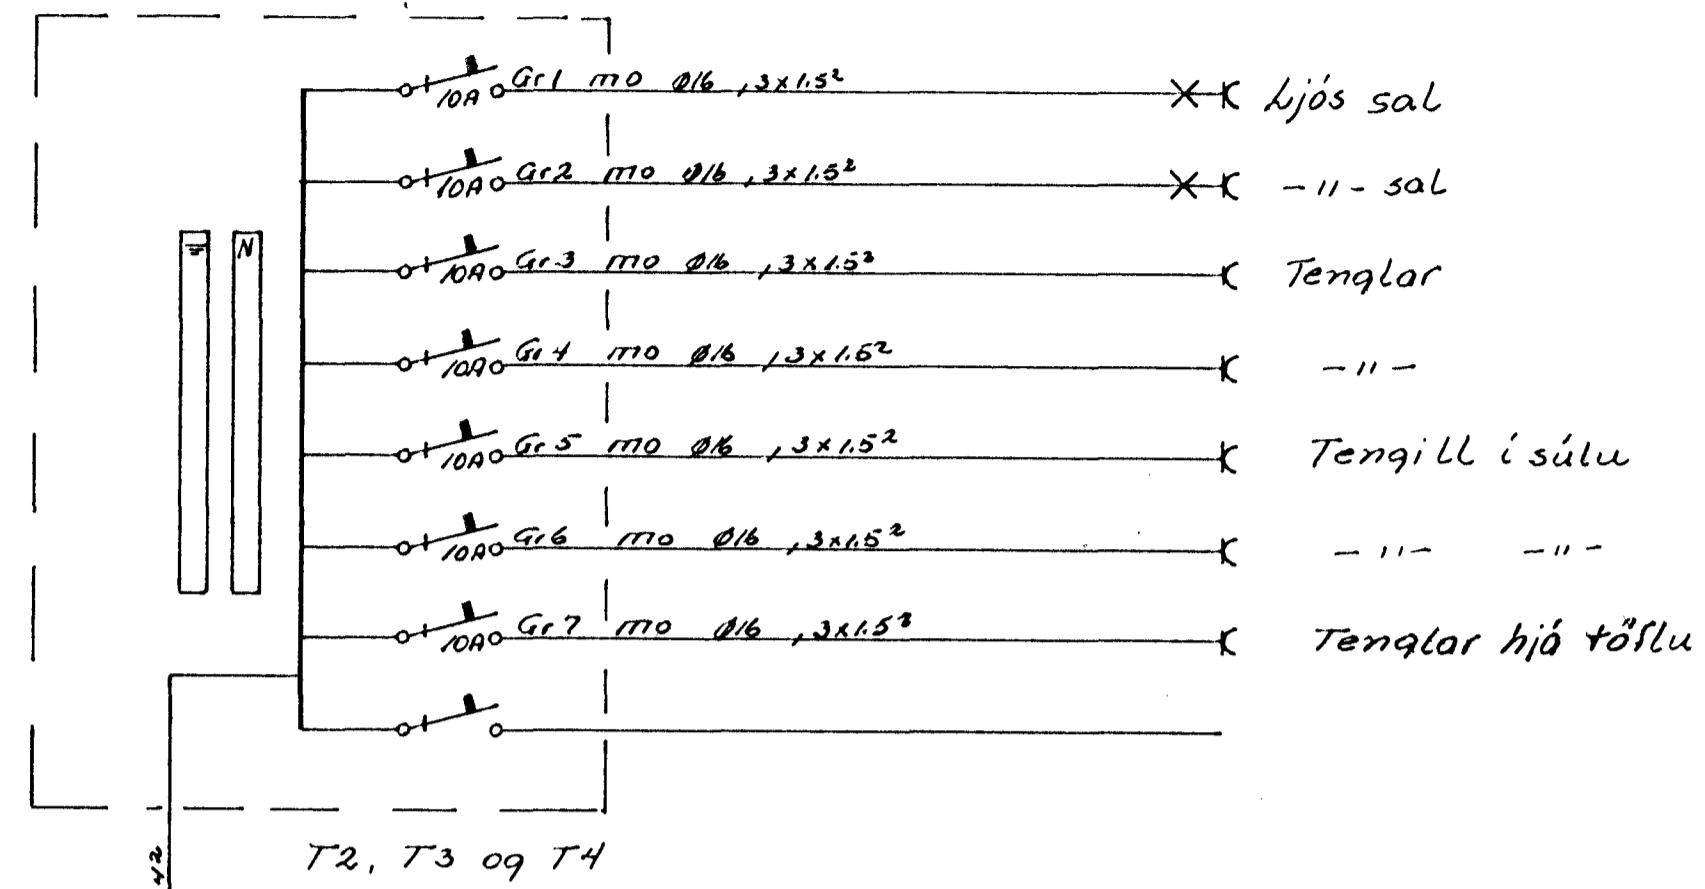 Gr 1 mo ø16 , 3 x 1.5² Ljós sal
10A
Gr 2 mo ø16 , 3 x 1.5² -"- sal
10A
N
Gr 3 mo ø16 , 3 x 1.5² Tenglar
10A
Gr 4 mo ø16 , 3 x 1.5² -"-
10A
Gr 5 mo ø16 , 3 x 1.5² Tengill í súlu
10A
Gr 6 mo ø16 , 3 x 1.5² -"- -"-
10A
Gr 7 mo ø16 , 3 x 1.5² Tenglar hjá töflu
10A
T2, T3 og T4